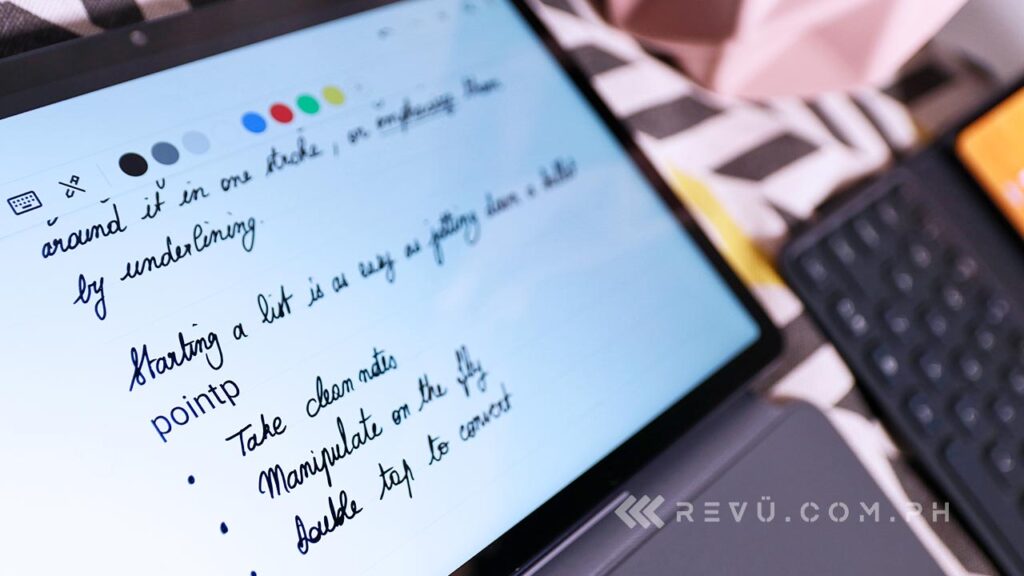 around it in one stroke, or emphasize them
by underlining.
Starting a list is as easy as jotting down a bullet
pointp
• Take clean notes
• Manipulate on the fly
• Double tap to convert
REVÜ.COM.PH